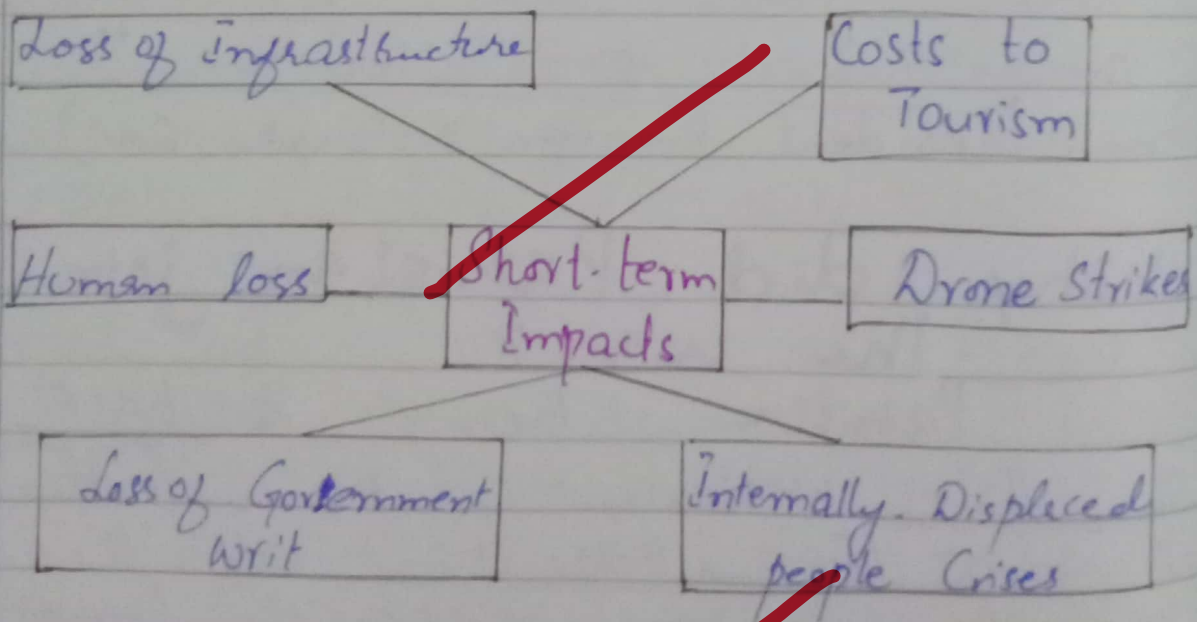 Loss of Infrastructure
Costs to
Tourism
Human loss
Short-term
Impacts
Drone Strikes
Loss of Government
Writ
Internally-Displaced
people Crises